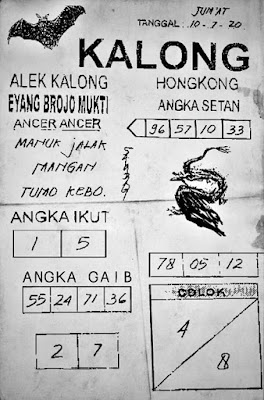 JUM'AT
TANGGAL: 10-7-20
KALONG
ALEK KALONG
EYANG BROJO MUKTI
ANCER ANCER
MANUK JALAK
MANGAN
TUMO KEBO.
HONGKONG
ANGKA SETAN
96 57 10 33
ANGKA IKUT
1 5
ANGKA GAIB
55 24 71 36
2 7
78 05 12
COLOK
4
8